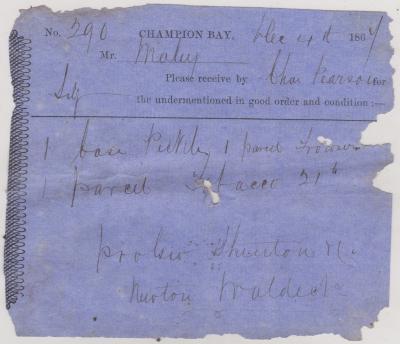 No. 290 CHAMPION BAY, Dec 1867
Mr. Maley
Please receive by Chas Pearson or
the undermentioned in good order and condition :—
1 case Pickles 1 parcel Trousers
1 parcel Tobacco 21 lb
pro Geo Shenton
Newton Waldeck